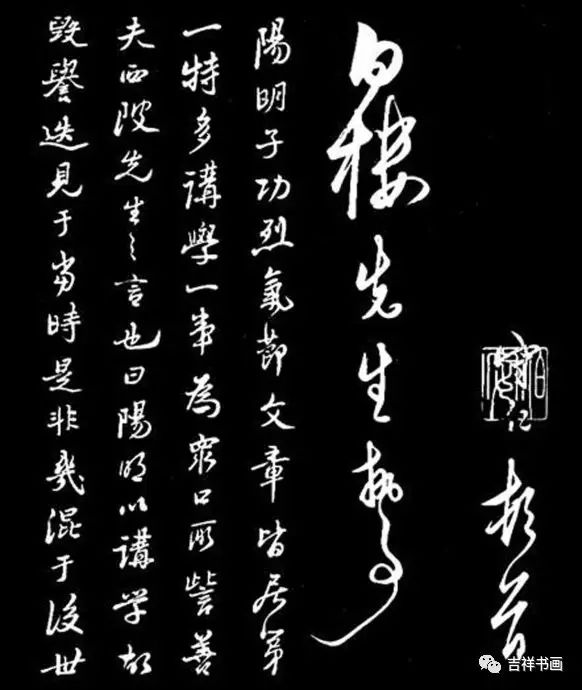 守仁頓首
白樓先生執事
陽明子功烈氣節文章皆居第
一特多講學一事為衆口所訾善
夫西陂先生之言也曰陽明以講學故
毀譽迭見于當時是非幾混于後世
吉祥书画